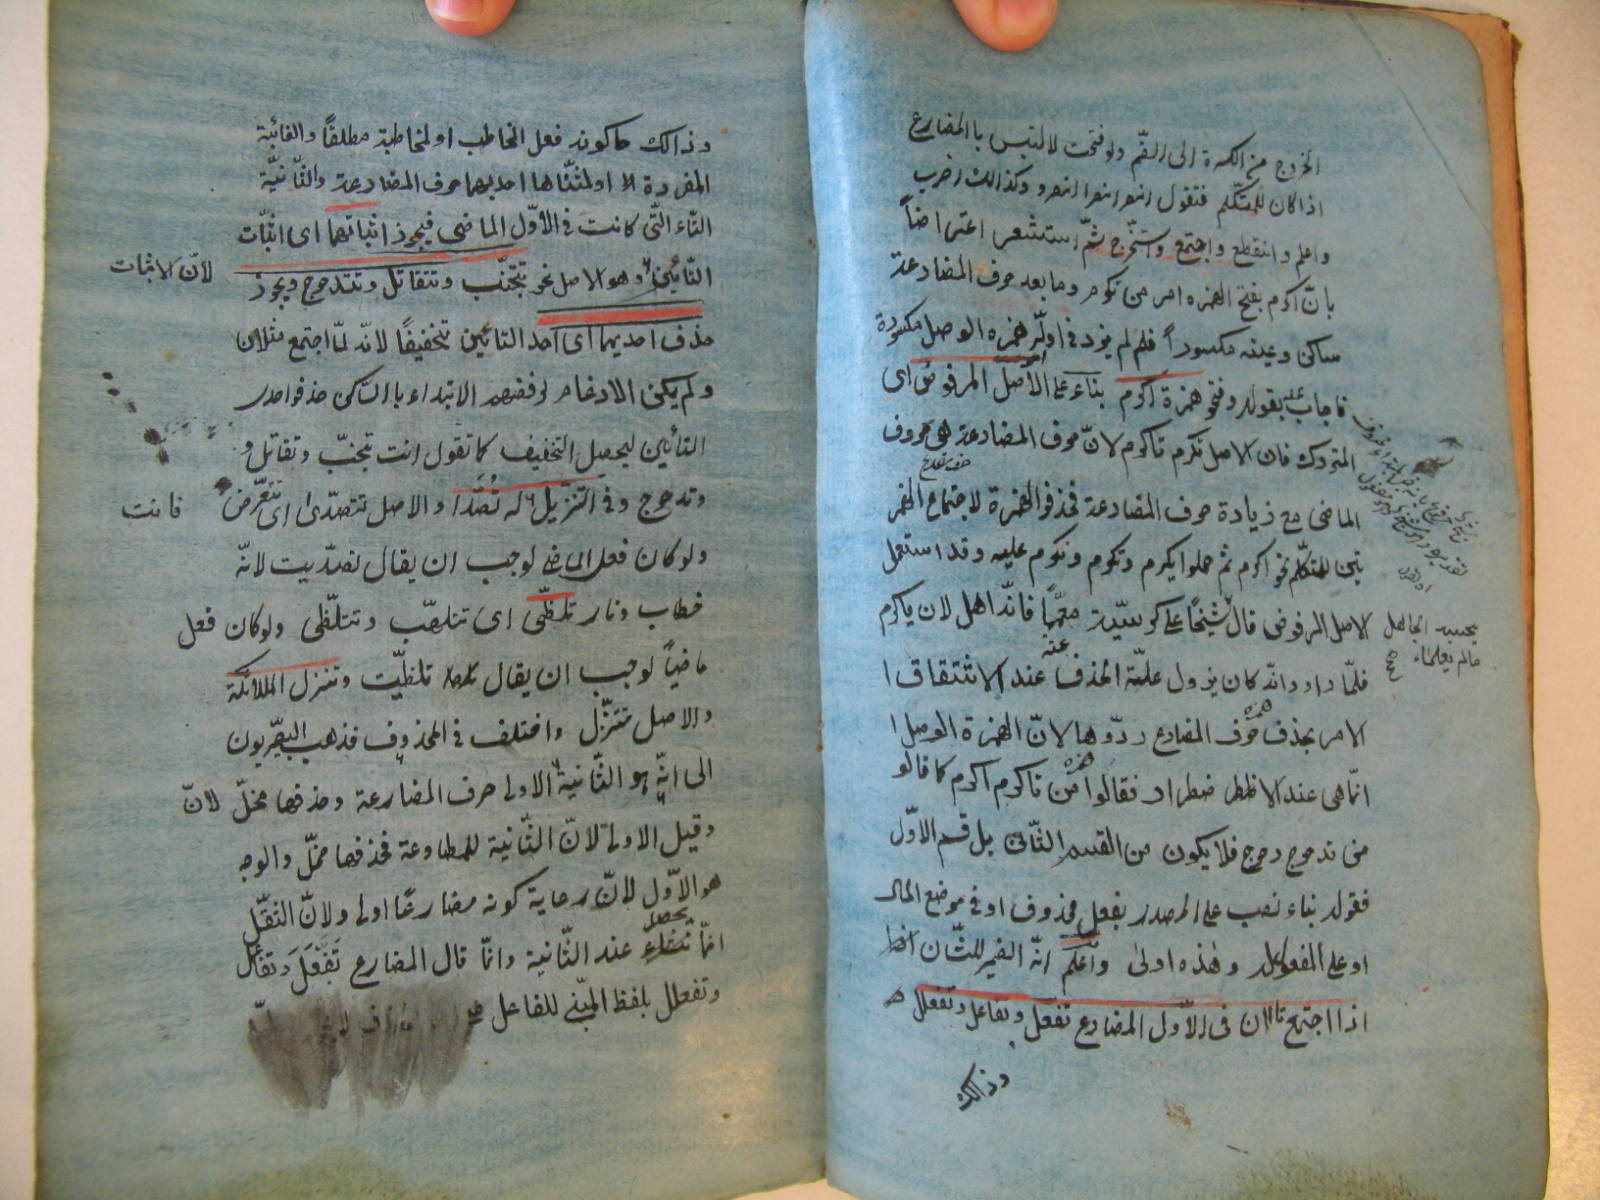 الخروج من الكسرة الى الضّم ولو فتحت لالتبس باالمضارع
اذا كان للمتكلّم فتقول انصر انصرا انصرو وكذالك اضرب
واعلم وانقطع واجتمع وستخرج ثمّ استشعر اعتراضاً
بانّ اكرم بفتح الهمزه امر من تكرم وما بعد حرف المضارعة
ساكن وعينه مكسوراً فلم لم يزد فى اوله همزه الوصل مكسورة
فاجاب عنه بقوله وفتحو همزة اكرم بناء على الاصل المرفوض اى
المتروك فان الاصل تكرم تأكرم لانّ حرف المضارعة هى حروف
الماضى مع زيادة حرف المضارعة فحذفوا الهمزة لاجتماع الهمز
تين للمتكلّم نحو اكرم ثم حملوا يكرم وتكرم ونكرم عليه وقد استعمل
الاصل المرفوض قال شيخاً على كرسيّه معمّماً فانّه اهل لان ياكرم
يحسبه الجاهل
مالم يعلماء
صح
فلمّا راو وانّه كان يزول علّة الحذف عند الاشتقاق ا
الامر بحذف حرف المضارع ردّوها لانّ الهمزة الوصل ا
انّما هى عند الاضطر ضطرار فقالوا من تاكرم اكرم كما قالو
من تدحرج دحرج فلا يكون من القسم الثّانى بل قسم الاوّل
فقوله بناء نصب على المصدر بفعل محذوف او فى موضع الحال
او على المفعول له وهذه اولى واعلم انّه الضمير للشّان
اذا اجتمع تاآن فى الاوّل المضارع تفعّل وتفاعل وتفعلل
وذالك
وذالك ما كونه فعل المخاطب او المخاطبة مطلقاً والغائبة
المفردة او المثنّاها احديهما حرف المضارعة والثّانيّة
التّاء التّى كانت فى الاوّل الماضى فيجوز اثباتهما اى اثبات
التّائين وهو الاصل نحو تتجنّب وتتقاتل وتتدحرج ويجوز
لانّ الاثبات
حذف احديهما اى احد التائين تخفيفاً لانّه لمّا اجتمع مثلان
ولم يكن الادغام لرفضهم الابتداء باالسّاكن حذفو احدى
التائين ليحصل التخفيف كما تقول انت تجنّب وتقاتل و
وتدحرج وفى التنزيل له تصدّا والاصل تتصدّى اى تتعرّض
فانت
ولو كان فعل الماضى لوجب ان يقال تصدّيت لانّه
خطاب ونار تلظّى اى تتلهّب وتتلّظى ولو كان فعل
ماضياً لوجب ان يقال تلظّيت وتنزل الملائكة
والاصل تتنزّل واختلف فى المحذوف فذهب البصّريون
الى انّه هو الثّانية الاولى حرف المضارعة وحذفها مخلّ لانّ
وقيل الاولى لانّ الثّانية للمطاوعة فحذفها مخلّ والوجه
هو الاوّل لانّ رعاية كونه مضارعًا اولى ولانّ الثقل
انّما يحصل عند الثّانية وانّما قال المضارع تفعّل وتفاعل
وتفعلل بلفظ المبنّى للفاعل